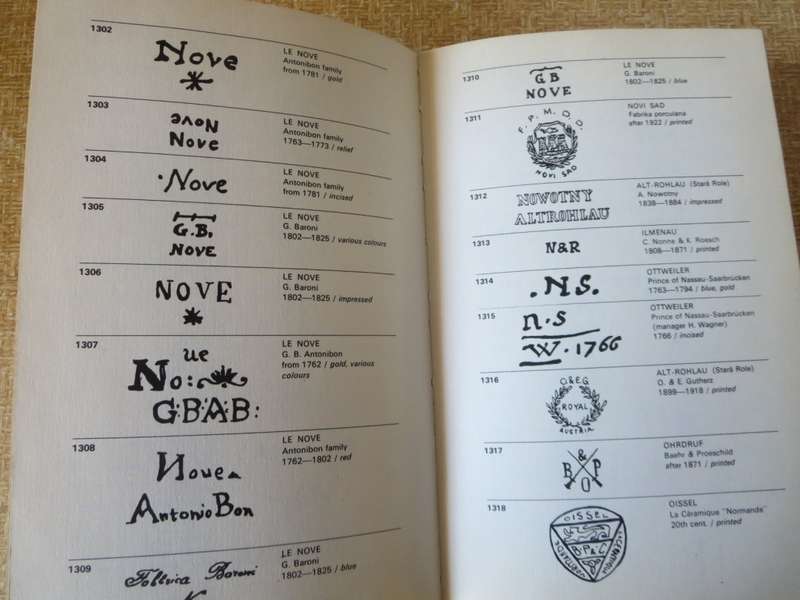 1302
Nove
LE NOVE
Antonibon family
from 1781 / gold
1303
Nove
Nove
LE NOVE
Antonibon family
1763—1773 / relief
1304
·Nove
LE NOVE
Antonibon family
from 1781 / incised
1305
G.B,
NOVE
LE NOVE
G. Baroni
1802—1825 / various colours
1306
NOVE
LE NOVE
G. Baroni
1802—1825 / impressed
1307
ue
No:
G:B:A:B:
LE NOVE
G. B. Antonibon
from 1762 / gold, various
colours
1308
Noue
Antonio Bon
LE NOVE
Antonibon family
1762—1802 / red
1309
Baroni
LE NOVE
G. Baroni
1802—1825 / blue
1310
G.B
NOVE
LE NOVE
G. Baroni
1802—1825 / blue
1311
F. P. M. D. D.
NOVI SAD
NOVI SAD
Fabrika porculana
after 1922 / printed
1312
NOWOTNY
ALTROHLAU
ALT-ROHLAU (Stará Role)
A. Nowotny
1838—1884 / impressed
1313
N&R
ILMENAU
C. Nonne & K. Roesch
1808—1871 / printed
1314
.NS.
OTTWEILER
Prince of Nassau-Saarbrücken
1763—1794 / blue, gold
1315
n.s
W.1766
OTTWEILER
Prince of Nassau-Saarbrücken
(manager H. Wagner)
1766 / incised
1316
O&EG
ROYAL
AUSTRIA
ALT-ROHLAU (Stará Role)
O. & E. Gutherz
1899—1918 / printed
1317
B P
O
OHRDRUF
Baehr & Proeschild
after 1871 / printed
1318
OISSEL
B.P.&C
OISSEL
La Céramique "Normande"
20th cent. / printed